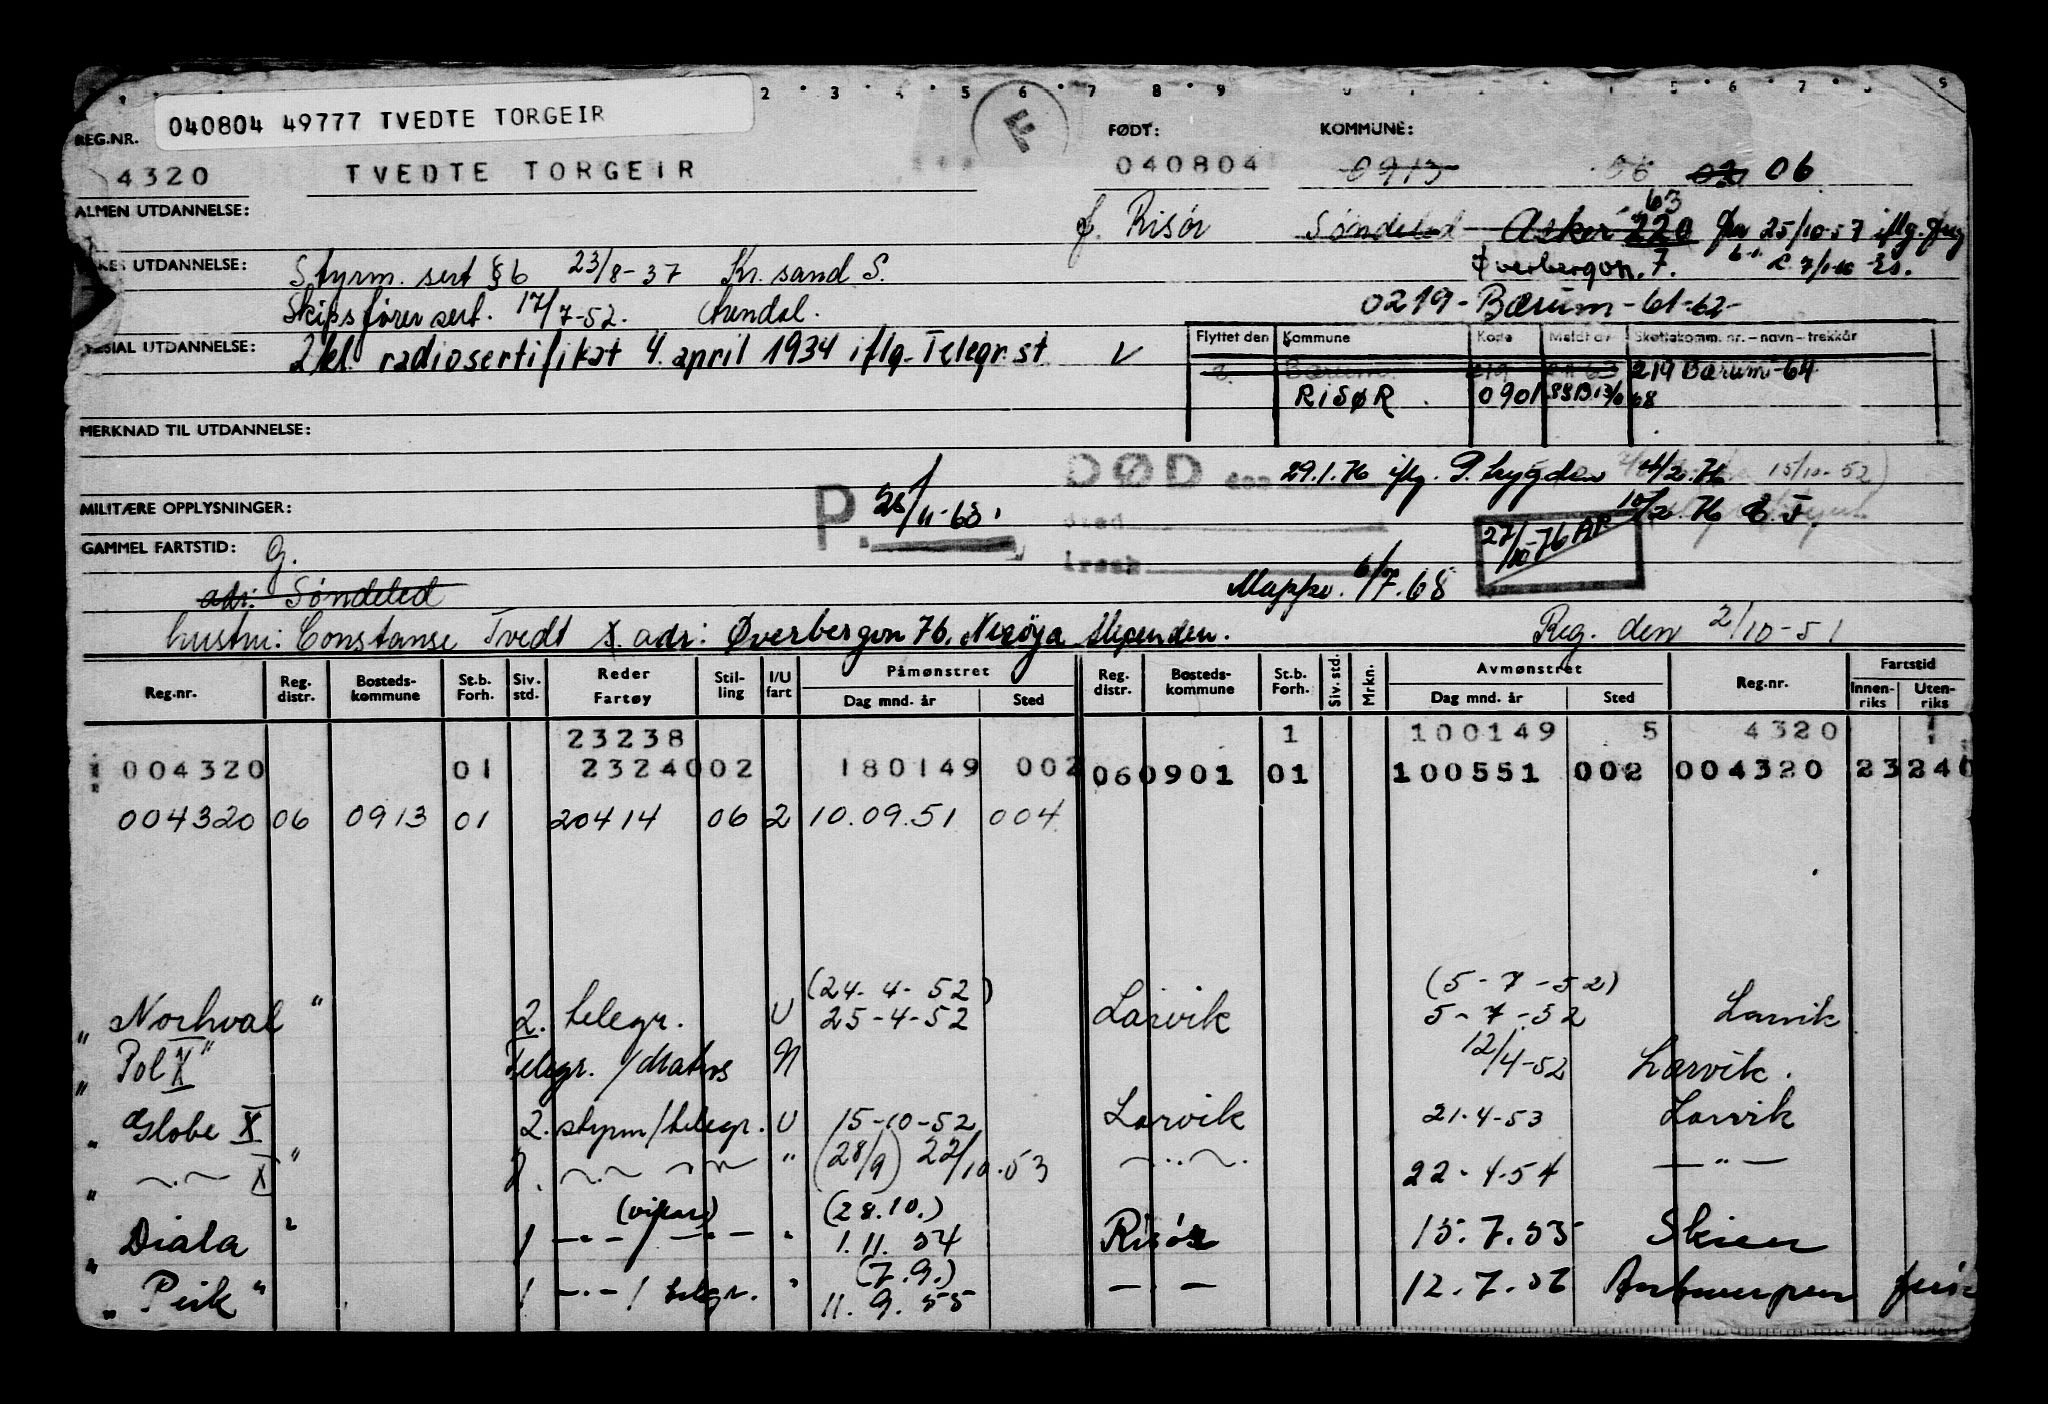 040804 49777 TVEDTE TORGEIR
REG.NR. FØDT: KOMMUNE:
4320 TVEDTE TORGEIR 040804 0913 06 06
ALMEN UTDANNELSE: f. Risør Søndeled Asker 220 63 fra 25/10-57 iflg.
UTDANNELSE: Styrm. sert §6 23/8-37 Kr.sand S. Øverbergvn. 7.
Skipsfører sert. 17/7-52. Arendal. 0219-Bærum-61-62-
UTDANNELSE: 2 kl. radiosertifikat 4. april 1934 iflg. Telegr.st V
Flyttet den Kommune Kode Meldt av Skattekomm. nr. – navn – trekkår
Bærum 219 219 Bærum-64
RISØR 0901 68
MERKNAD TIL UTDANNELSE:
DØD den 29.1.76 iflg. 15/10-52)
MILITÆRE OPPLYSNINGER: P. 25/11-68. sted 10/2.76
GAMMEL FARTSTID: G. årsak 27/10-76 AP
adr: Søndeled Mappe. 6/7.68
hustru: Constanse Tvedt adr: Øverbergvn 76, Nesøya Slependen. Reg. den 2/10-51
Reg.nr. Reg. distr. Bosteds-kommune St.b. Forh. Siv. std. Reder Fartøy Stil-ling I/U fart Påmønstret Dag mnd. år Sted Reg. distr. Bosteds-kommune St.b. Forh. Siv. std. Mrkn. Avmønstret Dag mnd. år Sted Reg.nr. Fartstid Innen-riks Uten-riks
23238 1 100149 5 4320
004320 01 23240 02 180149 002 06 0901 01 100551 002 004320 23240
004320 06 0913 01 20414 06 2 10.09.51 004
(24-4-52) (5-7-52)
" Norhval " 2. telegr. U 25-4-52 Larvik 5-7-52 Larvik
" Pol X " Telegr./Matros N 12/4-52 Larvik.
" Globe X 2. styrm/telegr. U 15-10-52 Larvik 21.4-53 Larvik
" —"— X " " (28/9) 22/10.53 —"— 22.4-54 —"—
(vikar) (28.10.)
" Diala " 1 —"— / —"— " 1.11.54 Risør 15.7.55 Skien
(7.9.)
" Peik " 1 —"— / telegr. " 11.9.55 —"— 12.7.56 Antwerpen